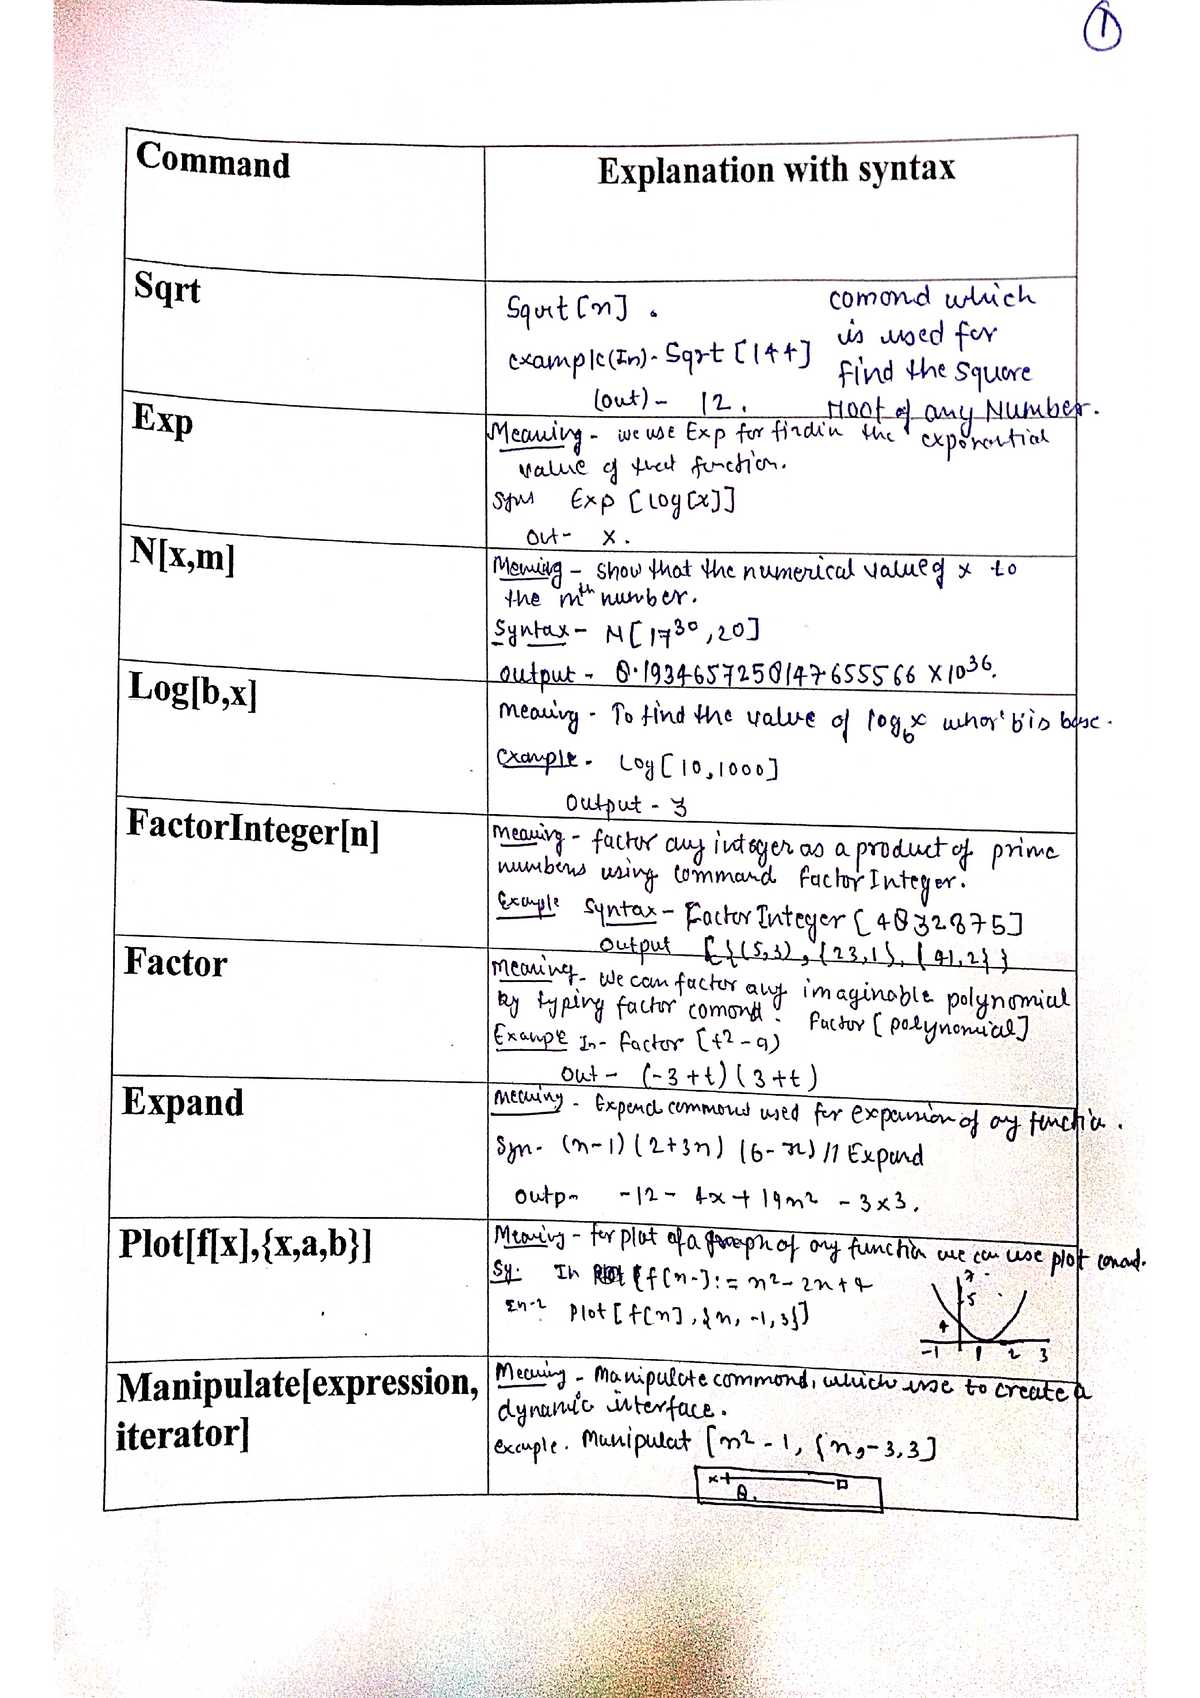 1
Command
Explanation with syntax
Sqrt
Sqrt [n] .
example(In)- Sqrt [144]
(out) - 12.
comond which
is used for
find the square
root of any Number.
Exp
Meaning - we use Exp for findin the exponential
value of that function.
Exp [Log[x]]
Out- x.
N[x,m]
Meaning - Show that the numerical value of x to
the mth number.
Syntax - N[17^30,20]
output - 0.19346572501476555566 X10^36.
Log[b,x]
Meaning - To find the value of log_b x wher 'b' is base.
Example - Log[10,1000]
Output - 3
FactorInteger[n]
Meaning - factor any integer as a product of prime
numbers using command factorInteger.
Example Syntax - FactorInteger [4832875]
output {{(5,3), {23,1}, {41,2}}
Factor
Meaning - We can factor any imaginable polynomial
by typing factor comond. factor [polynomial]
Example In- factor [t²-9)
Out - (-3+t)(3+t)
Expand
Meaning - Expend commond used for expansion of any function.
Syn- (n-1)(2+3n)(6-x) // Expand
Outp- -12-4x+19n²-3x3.
Plot[f[x],{x,a,b}]
Meaning - for plot of a graph of any function we can use plot comond.
Sy: In f[n-]:= n²-2n+4
In-2 Plot [f[n],{n,-1,3}]
7
5
4
-1 1 2 3
Manipulate[expression,
iterator]
Meaning - Manipulate commond, which use to create a
dynamic interface.
example. Manipulat [n²-1, {n,-3,3]
x